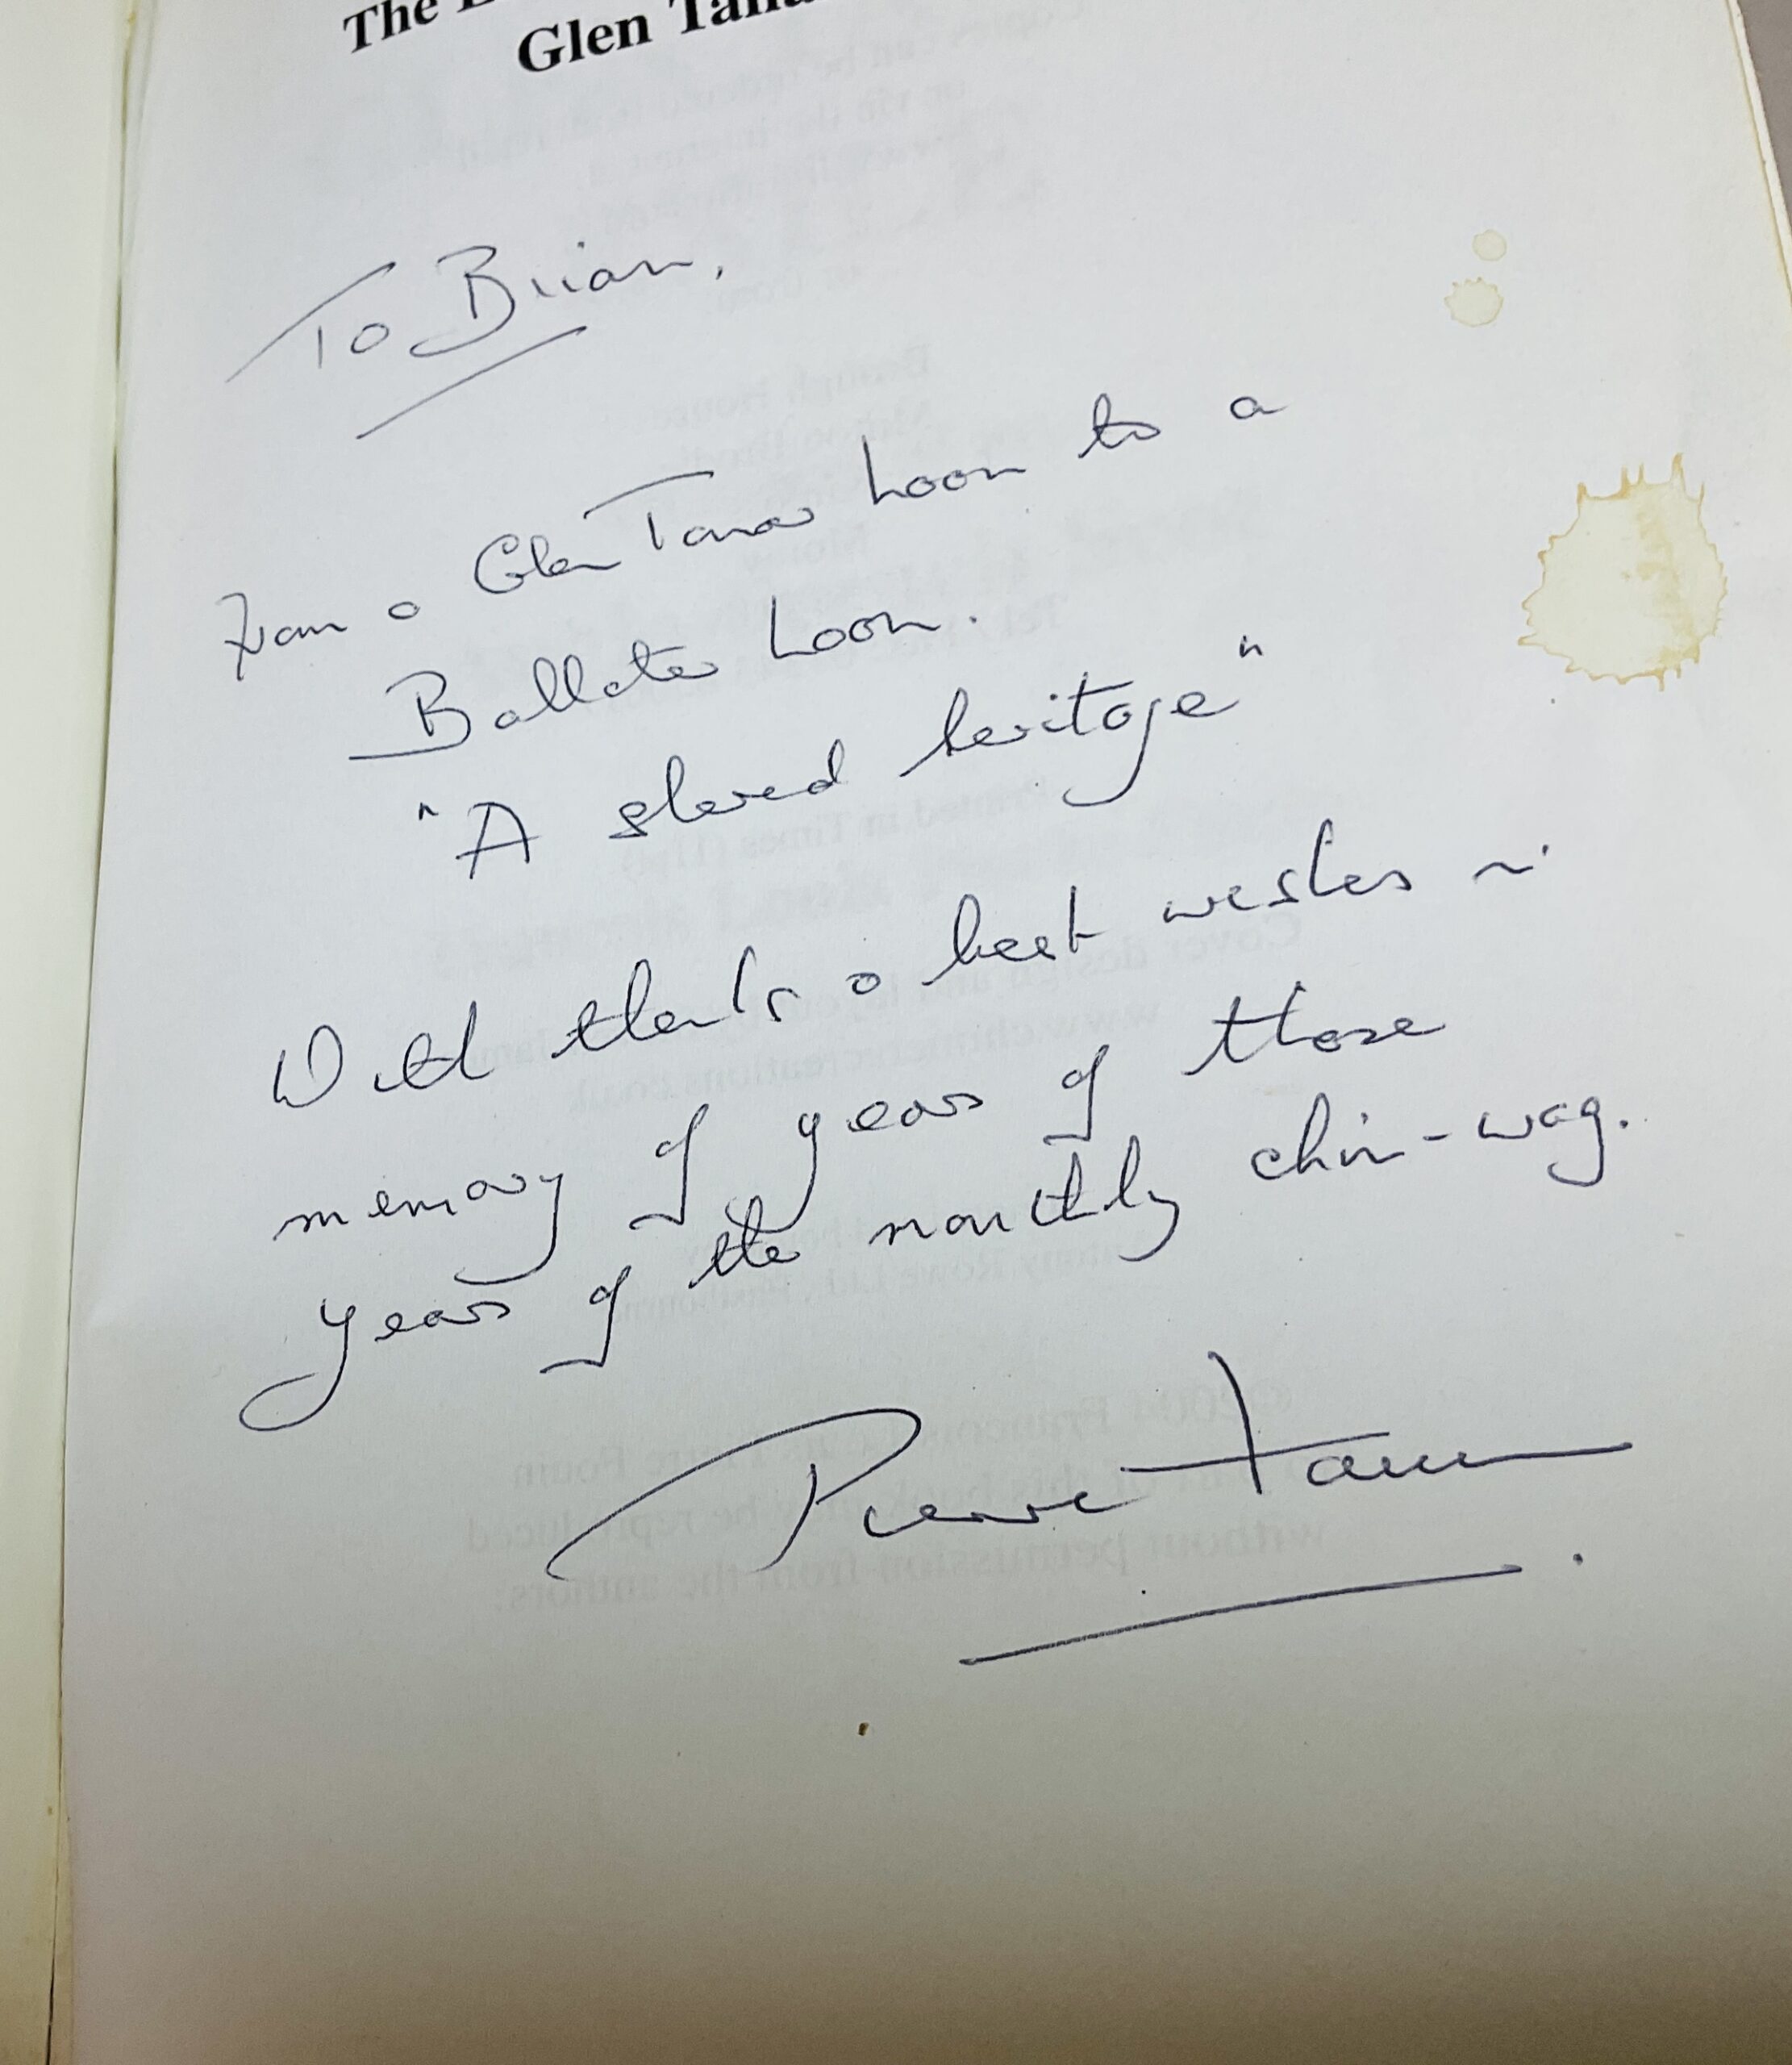 The
Glen Tana
To Brian,
From a Glen Tanar Loon to a
Ballater Loon.
"A shared heritage"
With thanks & best wishes in
memory of years of those
years of the monthly chin-wag.
Pierre